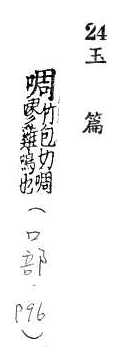 24
玉篇
啁竹包切啁
啾雞鳴也
(口部·P96)